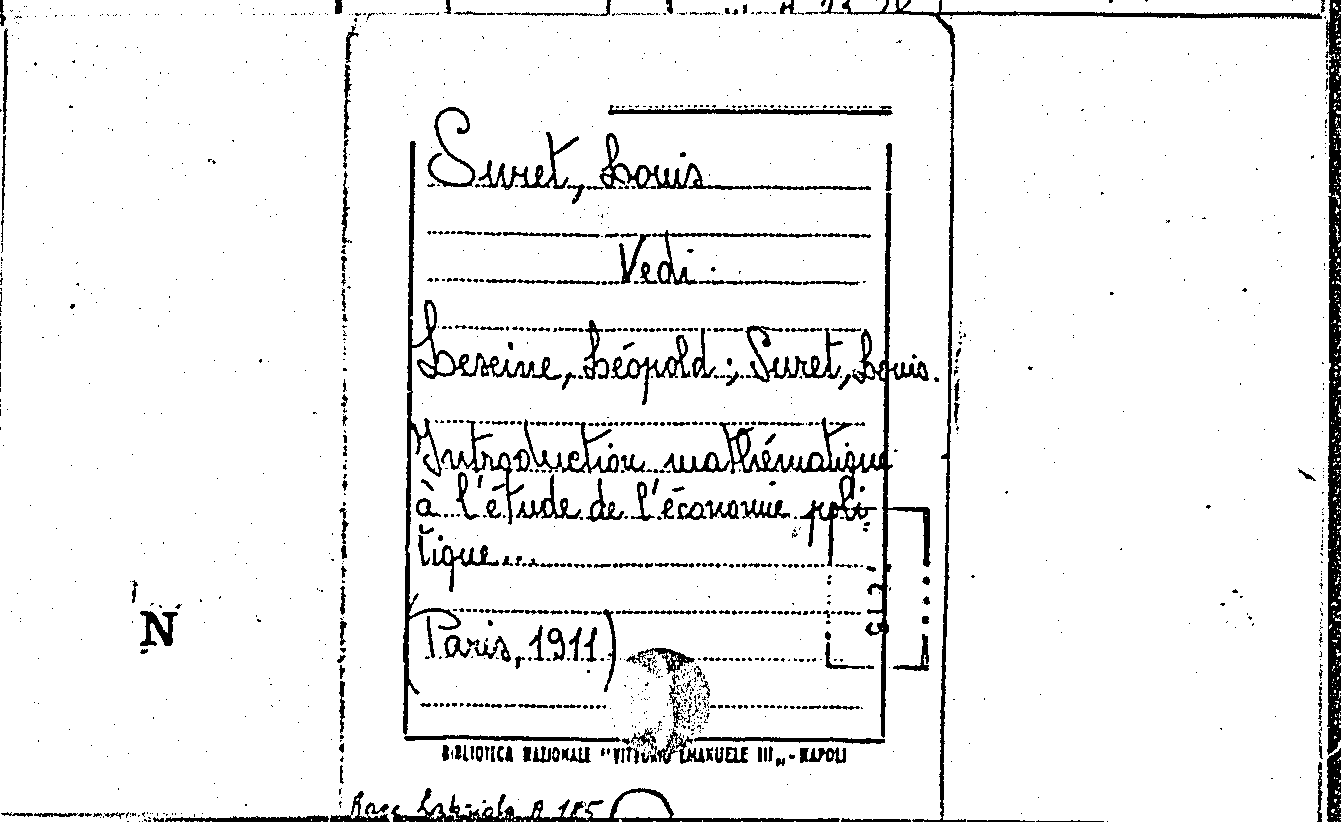 Suret, Louis
Vedi:
Leseine, Léopold; Suret, Louis.
Introduction mathématique
à l'étude de l'économie poli-
tique...
(Paris, 1911)
BIBLIOTECA NAZIONALE "VITTORIO EMANUELE III„ - NAPOLI
N
A 185